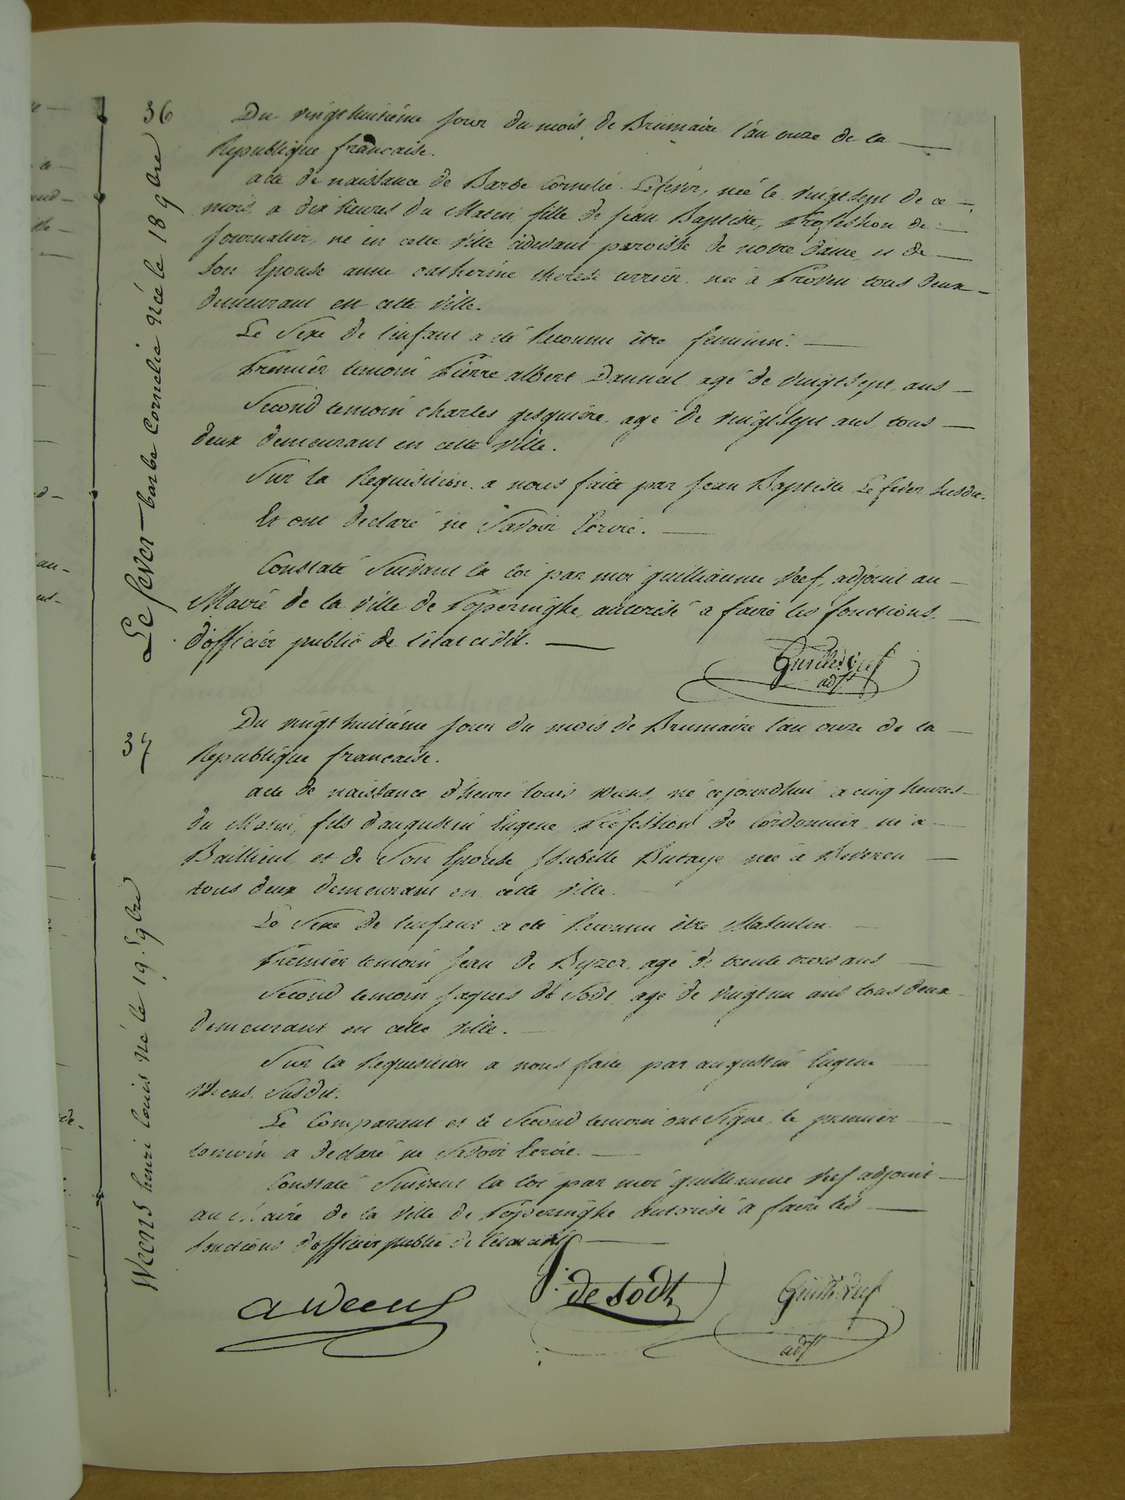 36
Le fever barbe Cornelie Née le 18 9bre
Du vingthuitième Jour du mois de Brumaire l'an onze de la
Republique française.
acte de naissance de Barbe Cornelie Lefever, née le vingtsept de ce
mois a dix heures du Matin fille de Jean Baptiste, Profession de
Journalier, né en cette Ville cidevant paroisse de notre Dame et de
Son Epouse anne catherine therese née à Proven tous deux
demeurant en cette Ville.
Le Sexe de l'enfant a été Reconnu être feminin.
Premier temoin Pierre albert agé de vingtsept ans
Second temoin charles gesquière agé de vingtsept ans tous
deux demeurant en cette Ville.
Sur la Requisition a nous faite par Jean Baptiste Le fever Susdit.
Et ont declaré ne Savoir Ecrire.
Constaté Suivant la loi par moi guilliaume Reef, adjoint au
Maire de la Ville de Poperinghe, autorisé a faire les fonctions
d'officier public de l'etat civil.
adjt
37
Weens henri louis Né le 19 9bre
Du vingthuitième Jour du mois de Brumaire l'an onze de la
Republique française.
acte de naissance d'henri louis Weens, né cejourdhui a cinq heures
du Matin, fils d'augustin Eugene Profession de Cordonnier né a
Baillieul et de Son Epouse Isabelle Butaye née à
tous deux demeurant en cette Ville.
Le Sexe de l'enfant a été Reconnu être Masculin
Premier temoin Jean de agé de trente trois ans
Second temoin Jaques de Sodt agé de vingtun ans tous deux
demeurant en cette Ville.
Sur la Requisition a nous faite par augustin Eugene
Weens Susdit.
Le Comparant et le Second temoin ont Signé le premier
temoin a declaré ne Savoir Ecrire.
Constaté Suivant la loi par moi guilliaume Reef adjoint
au Maire de la Ville de Poperinghe autorisé a faire les
fonctions d'officier public de l'etat civil
A Weens
J. de Sodt
adjt